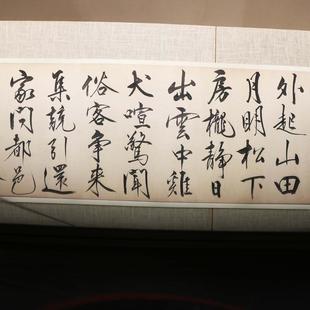 外起山田
月明松下
房櫳靜日
出雲中雞
犬喧驚聞
俗客争来
集競引還
家問都邑